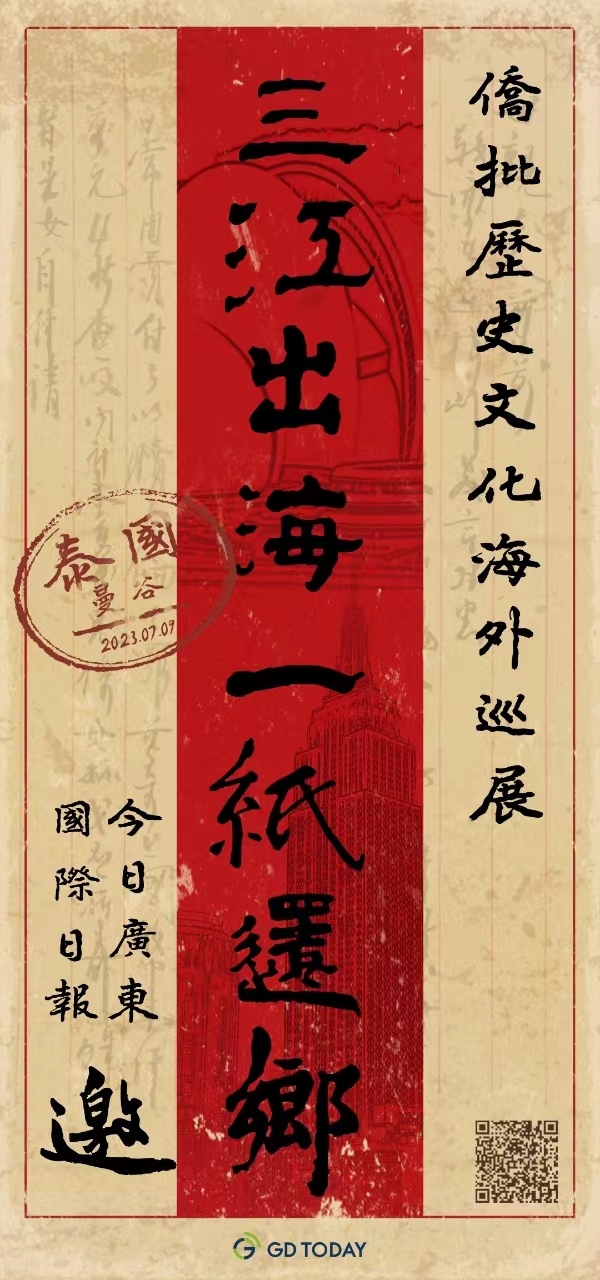 僑批歷史文化海外巡展
三江出海一紙還鄉
泰國
曼谷
2023.07.09
今日廣東
國際日報
邀
GD TODAY